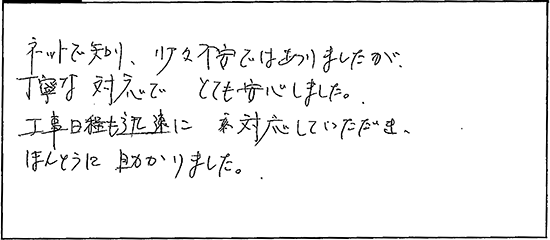 ネットで知り、少々不安ではありましたが、
丁寧な 対応で とても安心しました。
工事日程も迅速に 対応していただき、
ほんとうに 助かりました。